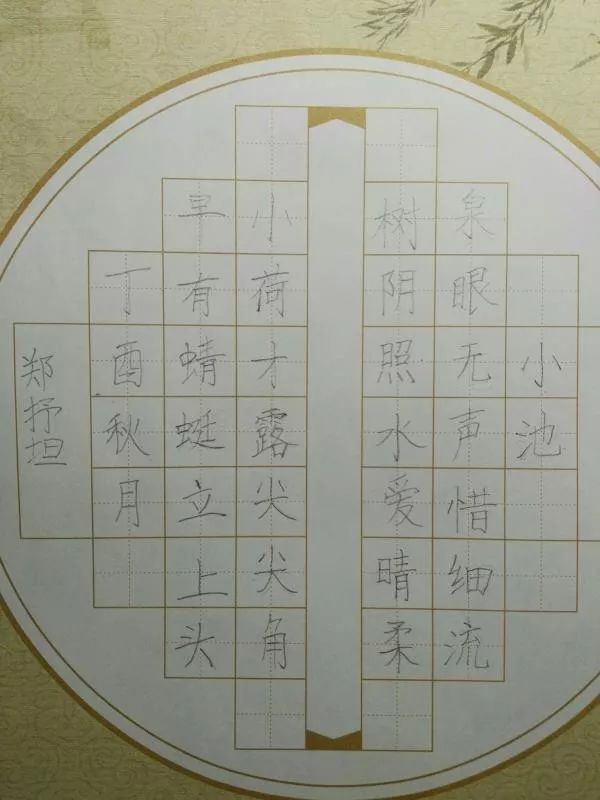 小池
泉眼无声惜细流
树阴照水爱晴柔
小荷才露尖尖角
早有蜻蜓立上头
丁酉秋月
郑抒坦